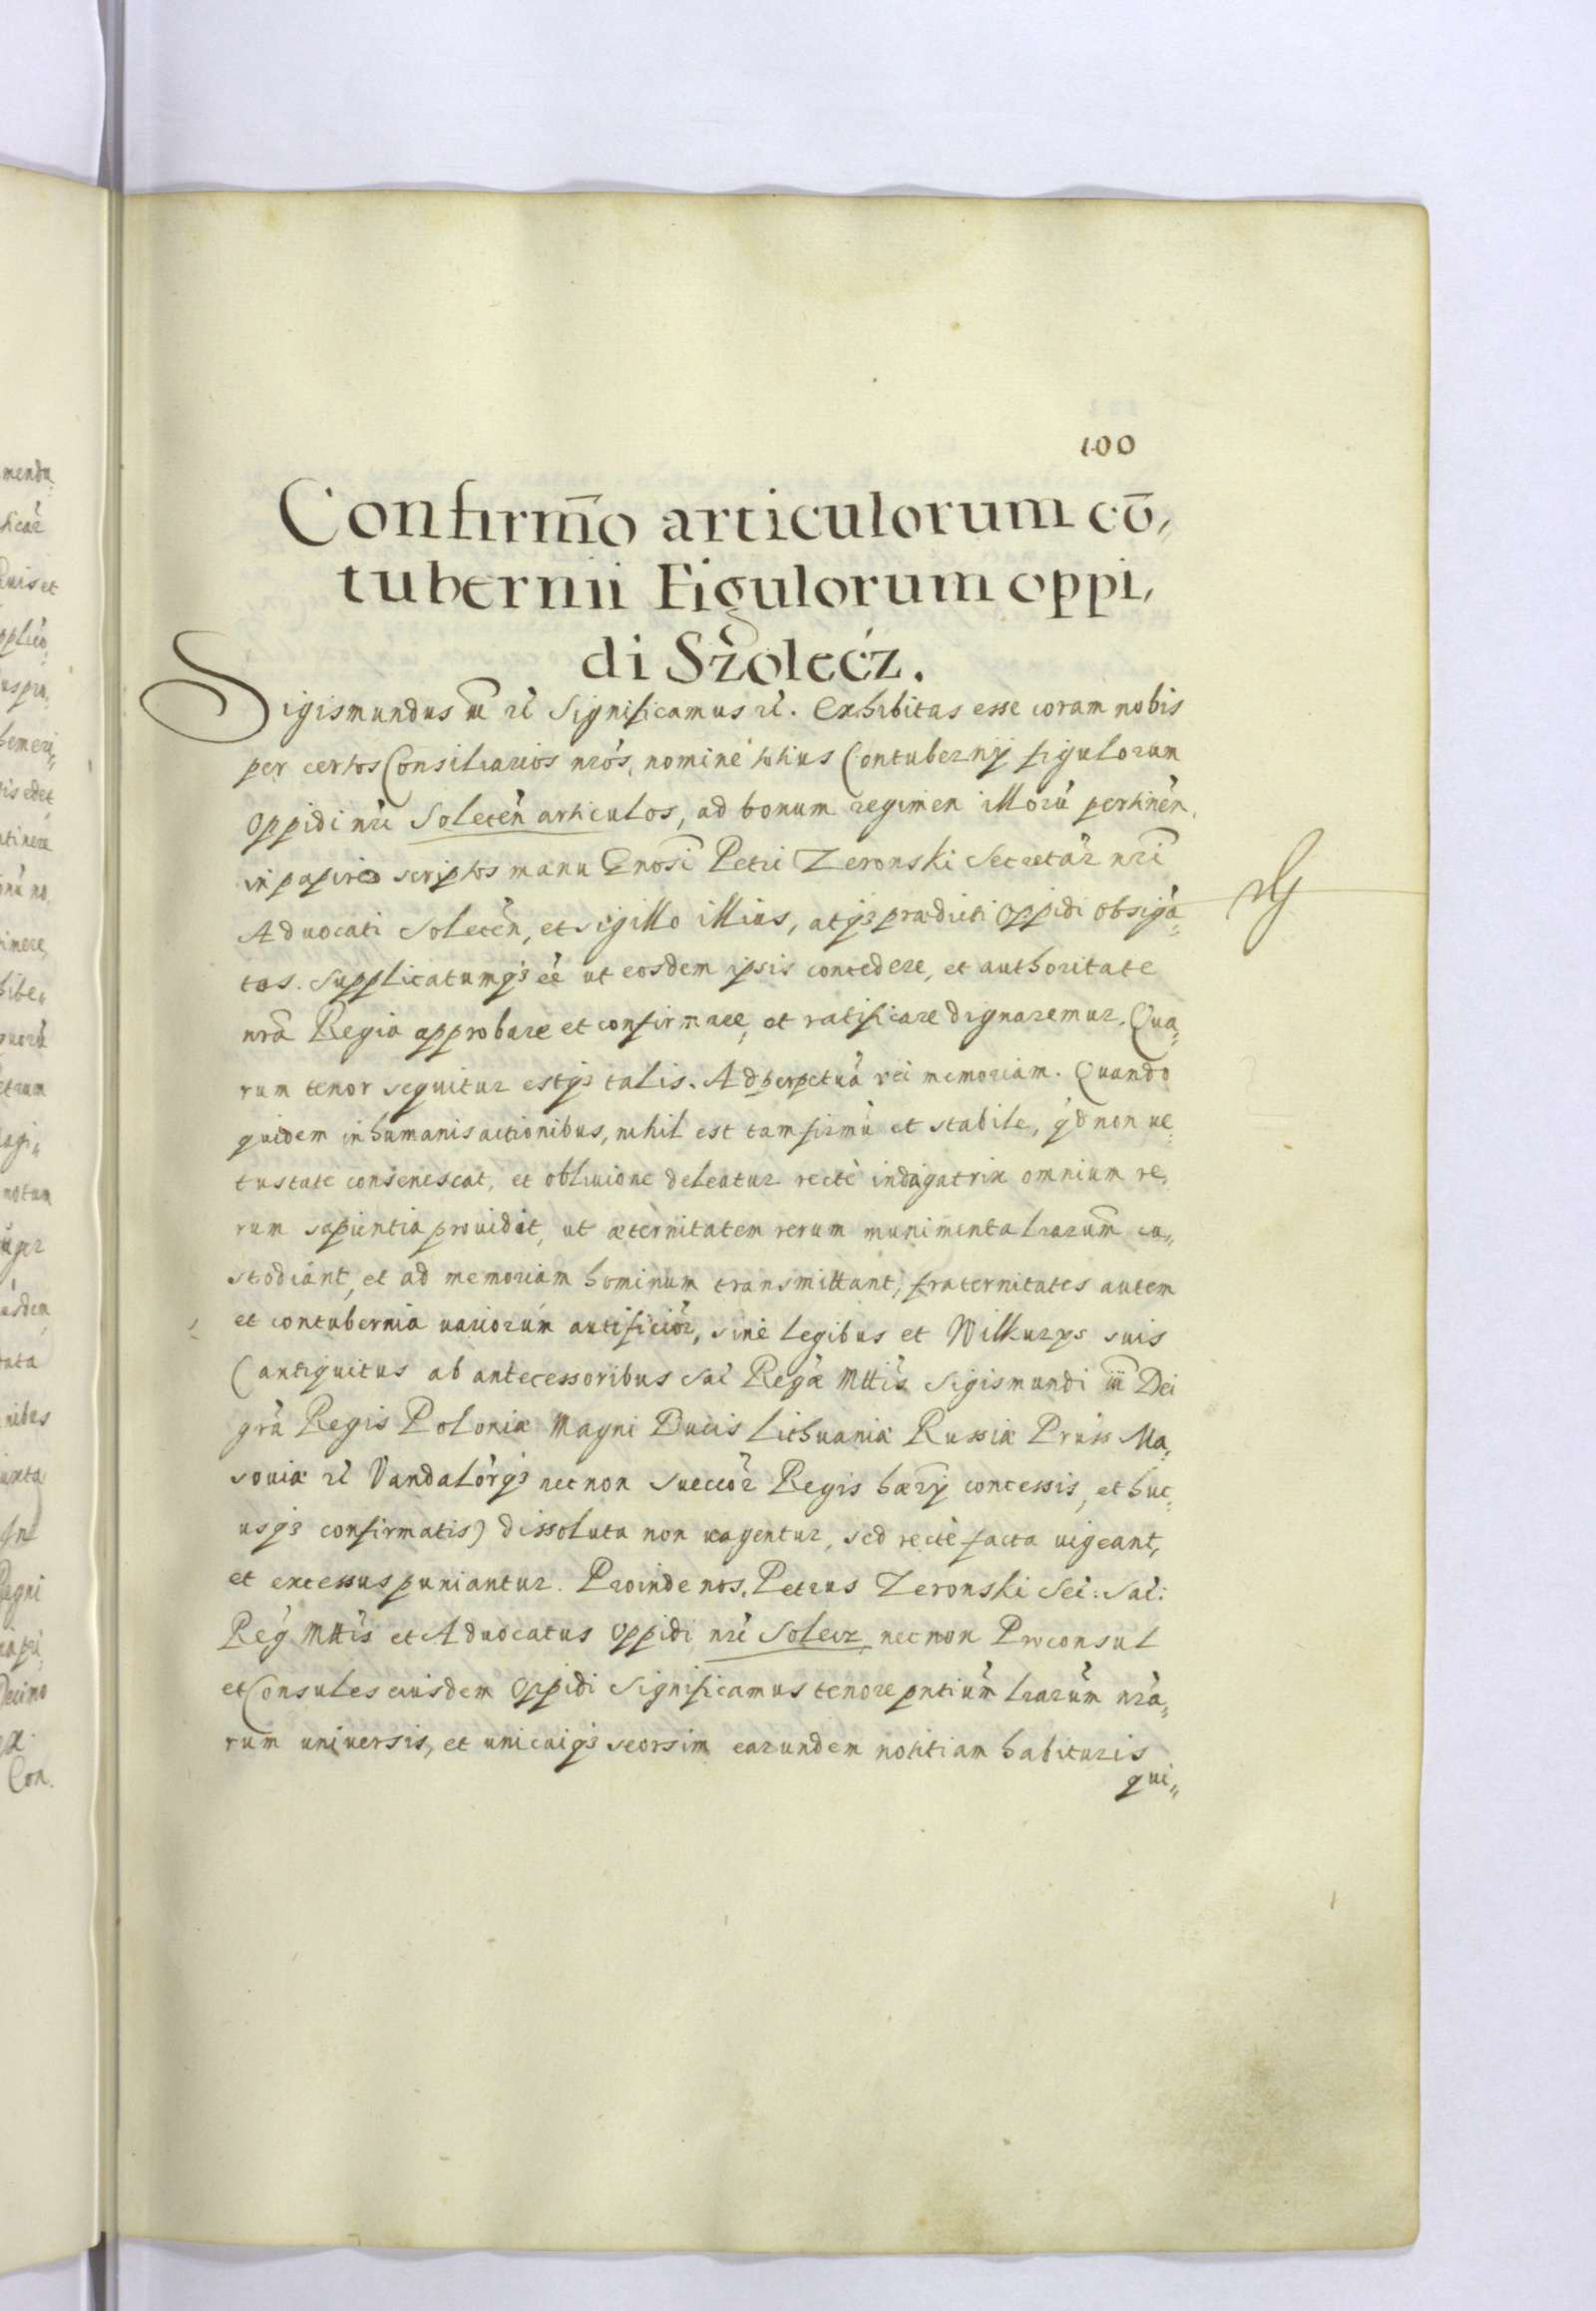 100
Confirmo̅ articulorum co̅,
tubernii Figulorum oppi,
di Szolecz.
Sigismundus iii &c Significamus &c. Exhibitas esse coram nobis
per certos Consiliarios nr̃os, nomine totius Contubernij figulorum
oppidi nr̃i Solecen̄ articulos, ad bonum regimen illorū pertinen̄,
in papireo scriptos manu Gnosi Petri Zeronski Secretar̄ nr̃i
Aduocati Solecen̄, et sigillo illius, atq3 prædicti oppidi obsiga̅„
tos. Supplicatumq3 ēē ut eosdem ipsis concedere, et authoritate
nr̃a Regia approbare et confirmare, et ratificare dignaremur. Qua„
rum tenor sequitur estq3 talis. Ad perpetuā rei memoriam. Quando
quidem in humanis actionibus, nihil est tam firmū et stabile, qd̄ non ue„
tustate consenescat, et obliuione deleatur rectè indagatrix omnium re„
rum sapientia prouidit, ut æternitatem rerum munimenta lr̃arum cu„
stodiant, et ad memoriam hominum transmittant, fraternitates autem
et contubernia uariorum artificior̄, sine legibus et Wilkurys suis
(antiquitus ab antecessoribus Sac̄ Regæ Mttis Sigismundi iii Dei
gr̄a Regis Poloniæ Magni Ducis Lithuaniæ Russiæ Pruss Ma„
souiæ &c Vandalor̄q3 necnon Sueccor̄ Regis hærij concessis, et huc„
usq3 confirmatis) dissoluta non uagentur, sed rectè facta uigeant,
et excessus puniantur. Proinde nos. Petrus Zeronski Sec̄: Sac̄:
Reḡ Mttis et Aduocatus oppidi nr̃i Solecz, necnon Proconsul
et Consules eiusdem Oppidi Significamus tenore pn̄tium lr̃arum nr̃a„
rum uniuersis, et unicuiq3 seorsim earundem notitiam habituris
qui„